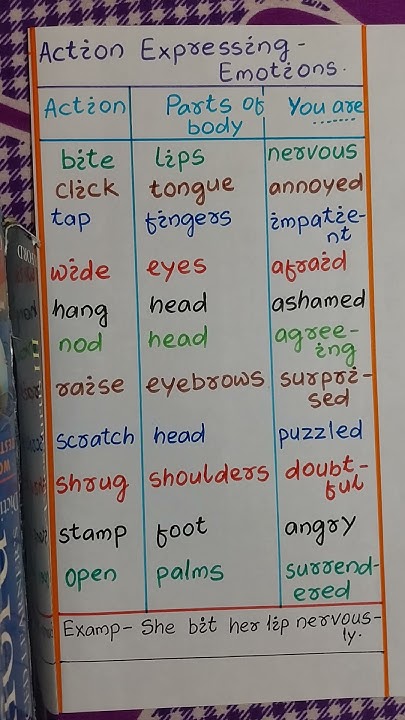 Action Expressing-
Emotions.
Action Parts of You are
body
bite lips nervous
click tongue annoyed
tap fingers impatie-
nt
wide eyes afraid
hang head ashamed
nod head agree-
ing
raise eyebrows surpri-
sed
scratch head puzzled
shrug shoulders doubt-
ful
stamp foot angry
open palms surrend-
ered
Examp- She bit her lip nervous-
ly.